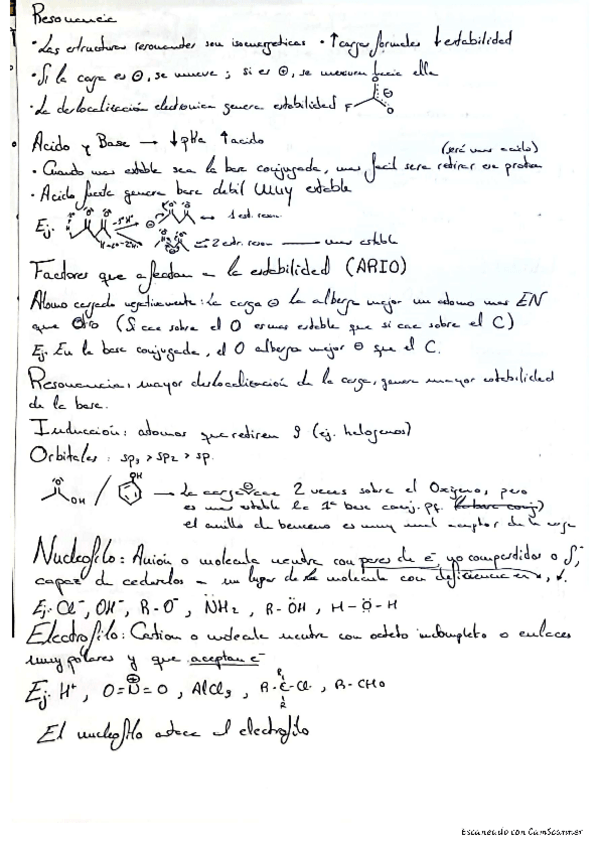 Resonancia
· Las estructuras resonantes son isoenergeticas · ↑ carga formales ↓ estabilidad
· Si la carga es ⊖, se mueve ; si es ⊕, se mueven hacia ella
· La deslocalización electronica genera estabilidad F O O
Acido y Base → ↓ pKa ↑ acido
(será mas acido)
· Cuando mas estable sea la base conjugada, mas facil sera retirar ese proton
· Acido fuerte genera base debil muy estable
Ej. → 1 est. reson.
2 estr. reson → mas estable
Factores que afectan a la estabilidad (ARIO)
Atomo cargado negativamente: la carga ⊖ la alberga mejor un atomo mas EN
que (Si cae sobre el O es mas estable que si cae sobre el C)
Ej. En la base conjugada, el O alberga mejor ⊖ que el C.
Resonancia: mayor deslocalización de la carga, genera mayor estabilidad
de la base.
Inducción: atomos que retiren (ej. halogenos)
Orbitales: sp3 > sp2 > sp.
O OH / OH → La carga ⊖ cae 2 veces sobre el Oxígeno, pero
es mas estable la 1ª base conj. pq.
el anillo de benceno es muy mal aceptor de la carga
Nucleofilo: Anión o molecula neutra con pares de e⁻, no compartidos o
capaz de cederlos a un lugar de la molecula con deficiencia
Ej. Cl⁻, OH⁻, R-O⁻, NH2, R-ÖH, H-Ö-H
Electrofilo: Cation o molecula neutra con octeto incompleto o enlaces
muy polares y que aceptan e⁻
Ej. H⁺, O=N=O, AlCl3, R-C-Cl, R-CHO
R
R
El nucleofilo ataca al electrofilo
Escaneado con CamScanner